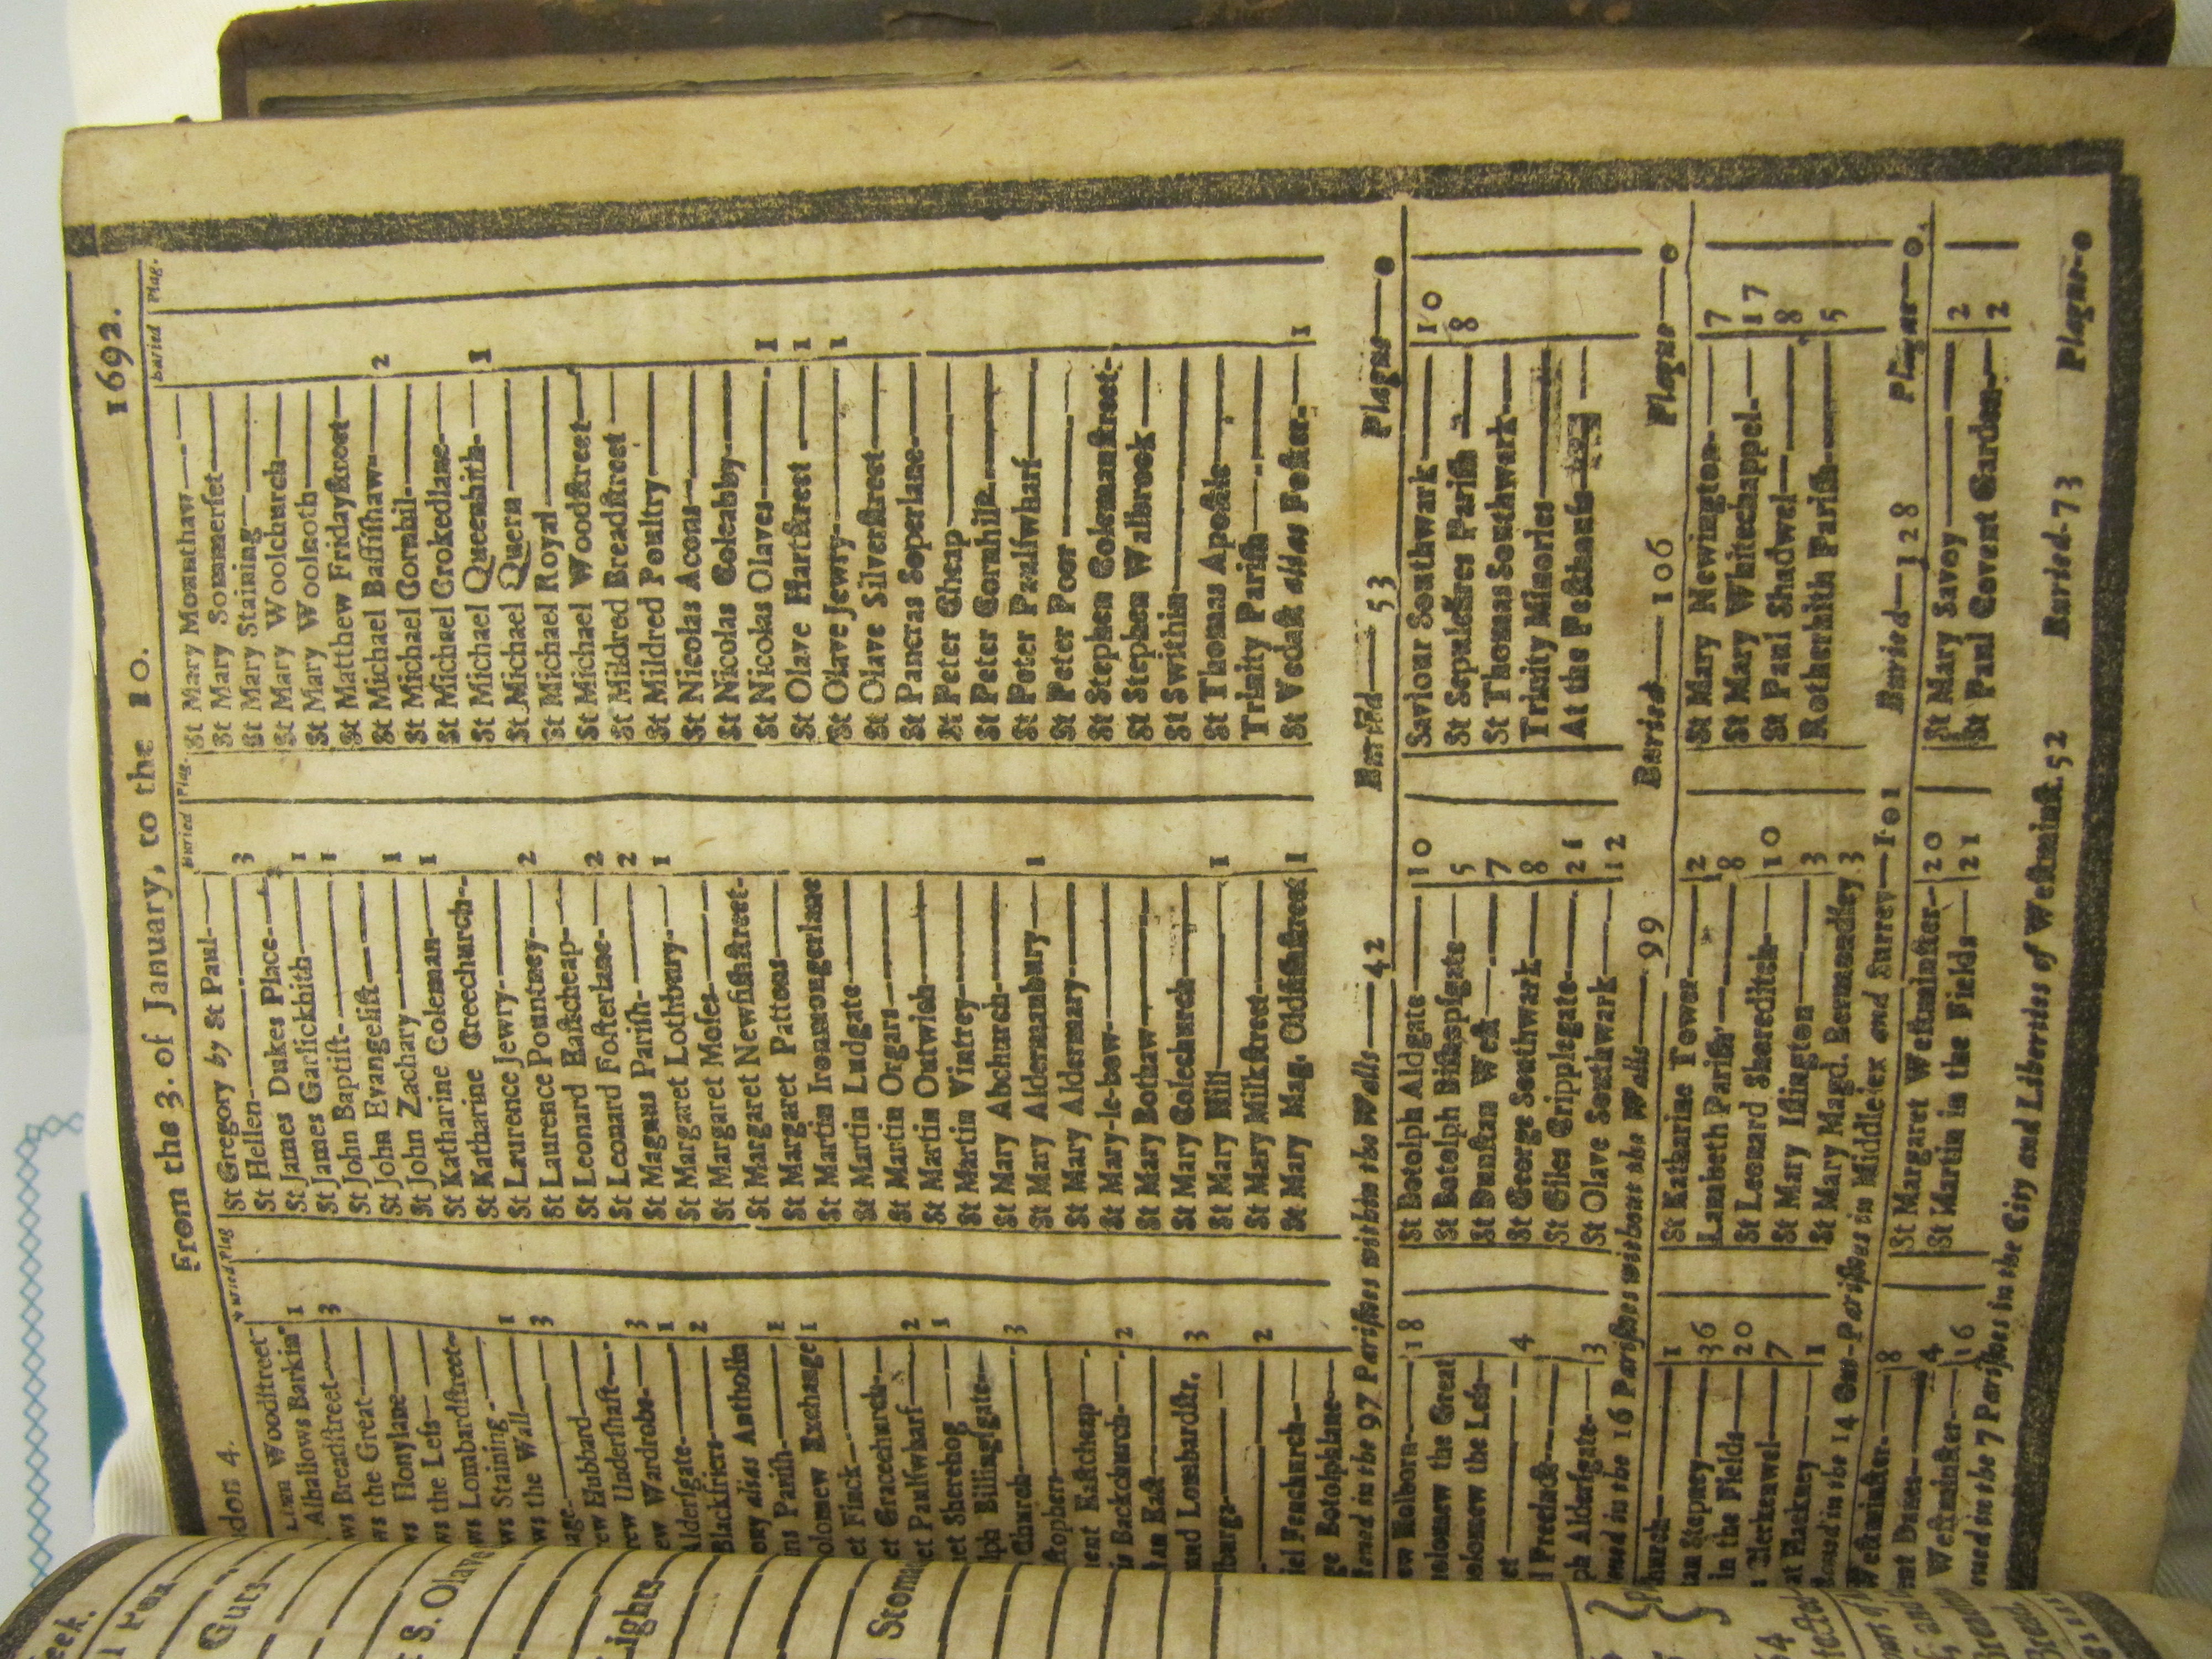 don 4. From the 3. of January, to the 10. 1692.
Buried Plag
Woodstreet
Alhallows Barkin 1
Breadstreet 3
the Great
Honylane
the Less
Lombardstreet
Staining
the Wall 1
age 3
Hubbard
Undershaft
Wardrobe 3
Aldersgate 1
Blackfriers 2
alias Antholin
Parish 1
olomew Exchange 1
Finck
Gracechurch
Paulswharf 2
Sherehog 1
Billingsgate
Church 3
stophers
Eastcheap
Backchurch 2
East
Lombardstr. 3
burge
2
Fenchurch
Botolphlane
Buried Plag.
St Gregory by St Paul
St Hellen 3
St James Dukes Place
St James Garlickhith 1
St John Baptist 1
St John Evangelist
St John Zachary 1
St Katharine Coleman 1
St Katharine Creechurch
St Laurence Jewry
St Laurence Pountney 2
St Leonard Eastcheap
St Leonard Fosterlane 2
St Magnus Parish 2
St Margaret Lothbury 1
St Margaret Moses
St Margaret Newfishstreet
St Margaret Pattons
St Martin Ironmongerlane
St Martin Ludgate
St Martin Orgars
St Martin Outwich
St Martin Vintrey
St Mary Abchurch
St Mary Aldermanbury 1
St Mary Aldermary
St Mary-le-bow
St Mary Bothaw
St Mary Colechurch
St Mary Hill 1
St Mary Milkstreet
St Mary Mag. Oldfishstreet 1
Buried Plag.
St Mary Mounthaw
St Mary Sommerset
St Mary Staining
St Mary Woolchurch
St Mary Woolnoth
St Matthew Fridaystreet
St Michael Bassishaw 2
St Michael Cornhil
St Michael Crokedlane
St Michael Queenhith 1
St Michael Quern
St Michael Royal
St Michael Woodstreet
St Mildred Breadstreet
St Mildred Poultry
St Nicolas Acons
St Nicolas Coleabby
St Nicolas Olaves 1
St Olave Hartstreet 1
St Olave Jewry 1
St Olave Silverstreet
St Pancras Soperlane
St Peter Cheap
St Peter Cornhil
St Peter Paulswharf
St Peter Poor
St Stephen Colemanstreet
St Stephen Walbrook
St Swithin
St Thomas Apostle
Trinity Parish
St Vedast alias Foster 1
tened in the 97 Parishes within the Walls—42 Buried—53 Plague—0
Holborn 18
olomew the Great
olomew the Less
4
Aldersgate 3
St Botolph Aldgate 10
St Botolph Bishopsgate 5
St Dunstan West 7
St George Southwark 8
St Giles Cripplegate 21
St Olave Southwark 12
Saviour Southwark 10
St Sepulchres Parish 8
St Thomas Southwark
Trinity Minories
At the Pesthouse
tened in the 16 Parishes without the Walls—99 Buried—106 Plague—0
church 1
tan Stepney 36
in the Fields 20
Clerkenwel 7
at Hackney 1
St Katharine Tower 2
Lambeth Parish 8
St Leonard Shoreditch 10
St Mary Islington 3
St Mary Magd. Bermondsey 3
St Mary Newington 7
St Mary Whitechappel 17
St Paul Shadwel 8
Rotherhith Parish 5
tened in the 14 Out-Parishes in Middlesex and Surrey—101 Buried—128 Plague—0
Westminster 8
ent Danes 4
Westminster 16
St Margaret Westminster 20
St Martin in the Fields 21
St Mary Savoy 2
St Paul Covent Garden 2
tened in the 7 Parishes in the City and Liberties of Westminst. 52 Buried-73 Plague-0
eek.
Guts
S. Olave
Lights
Stom